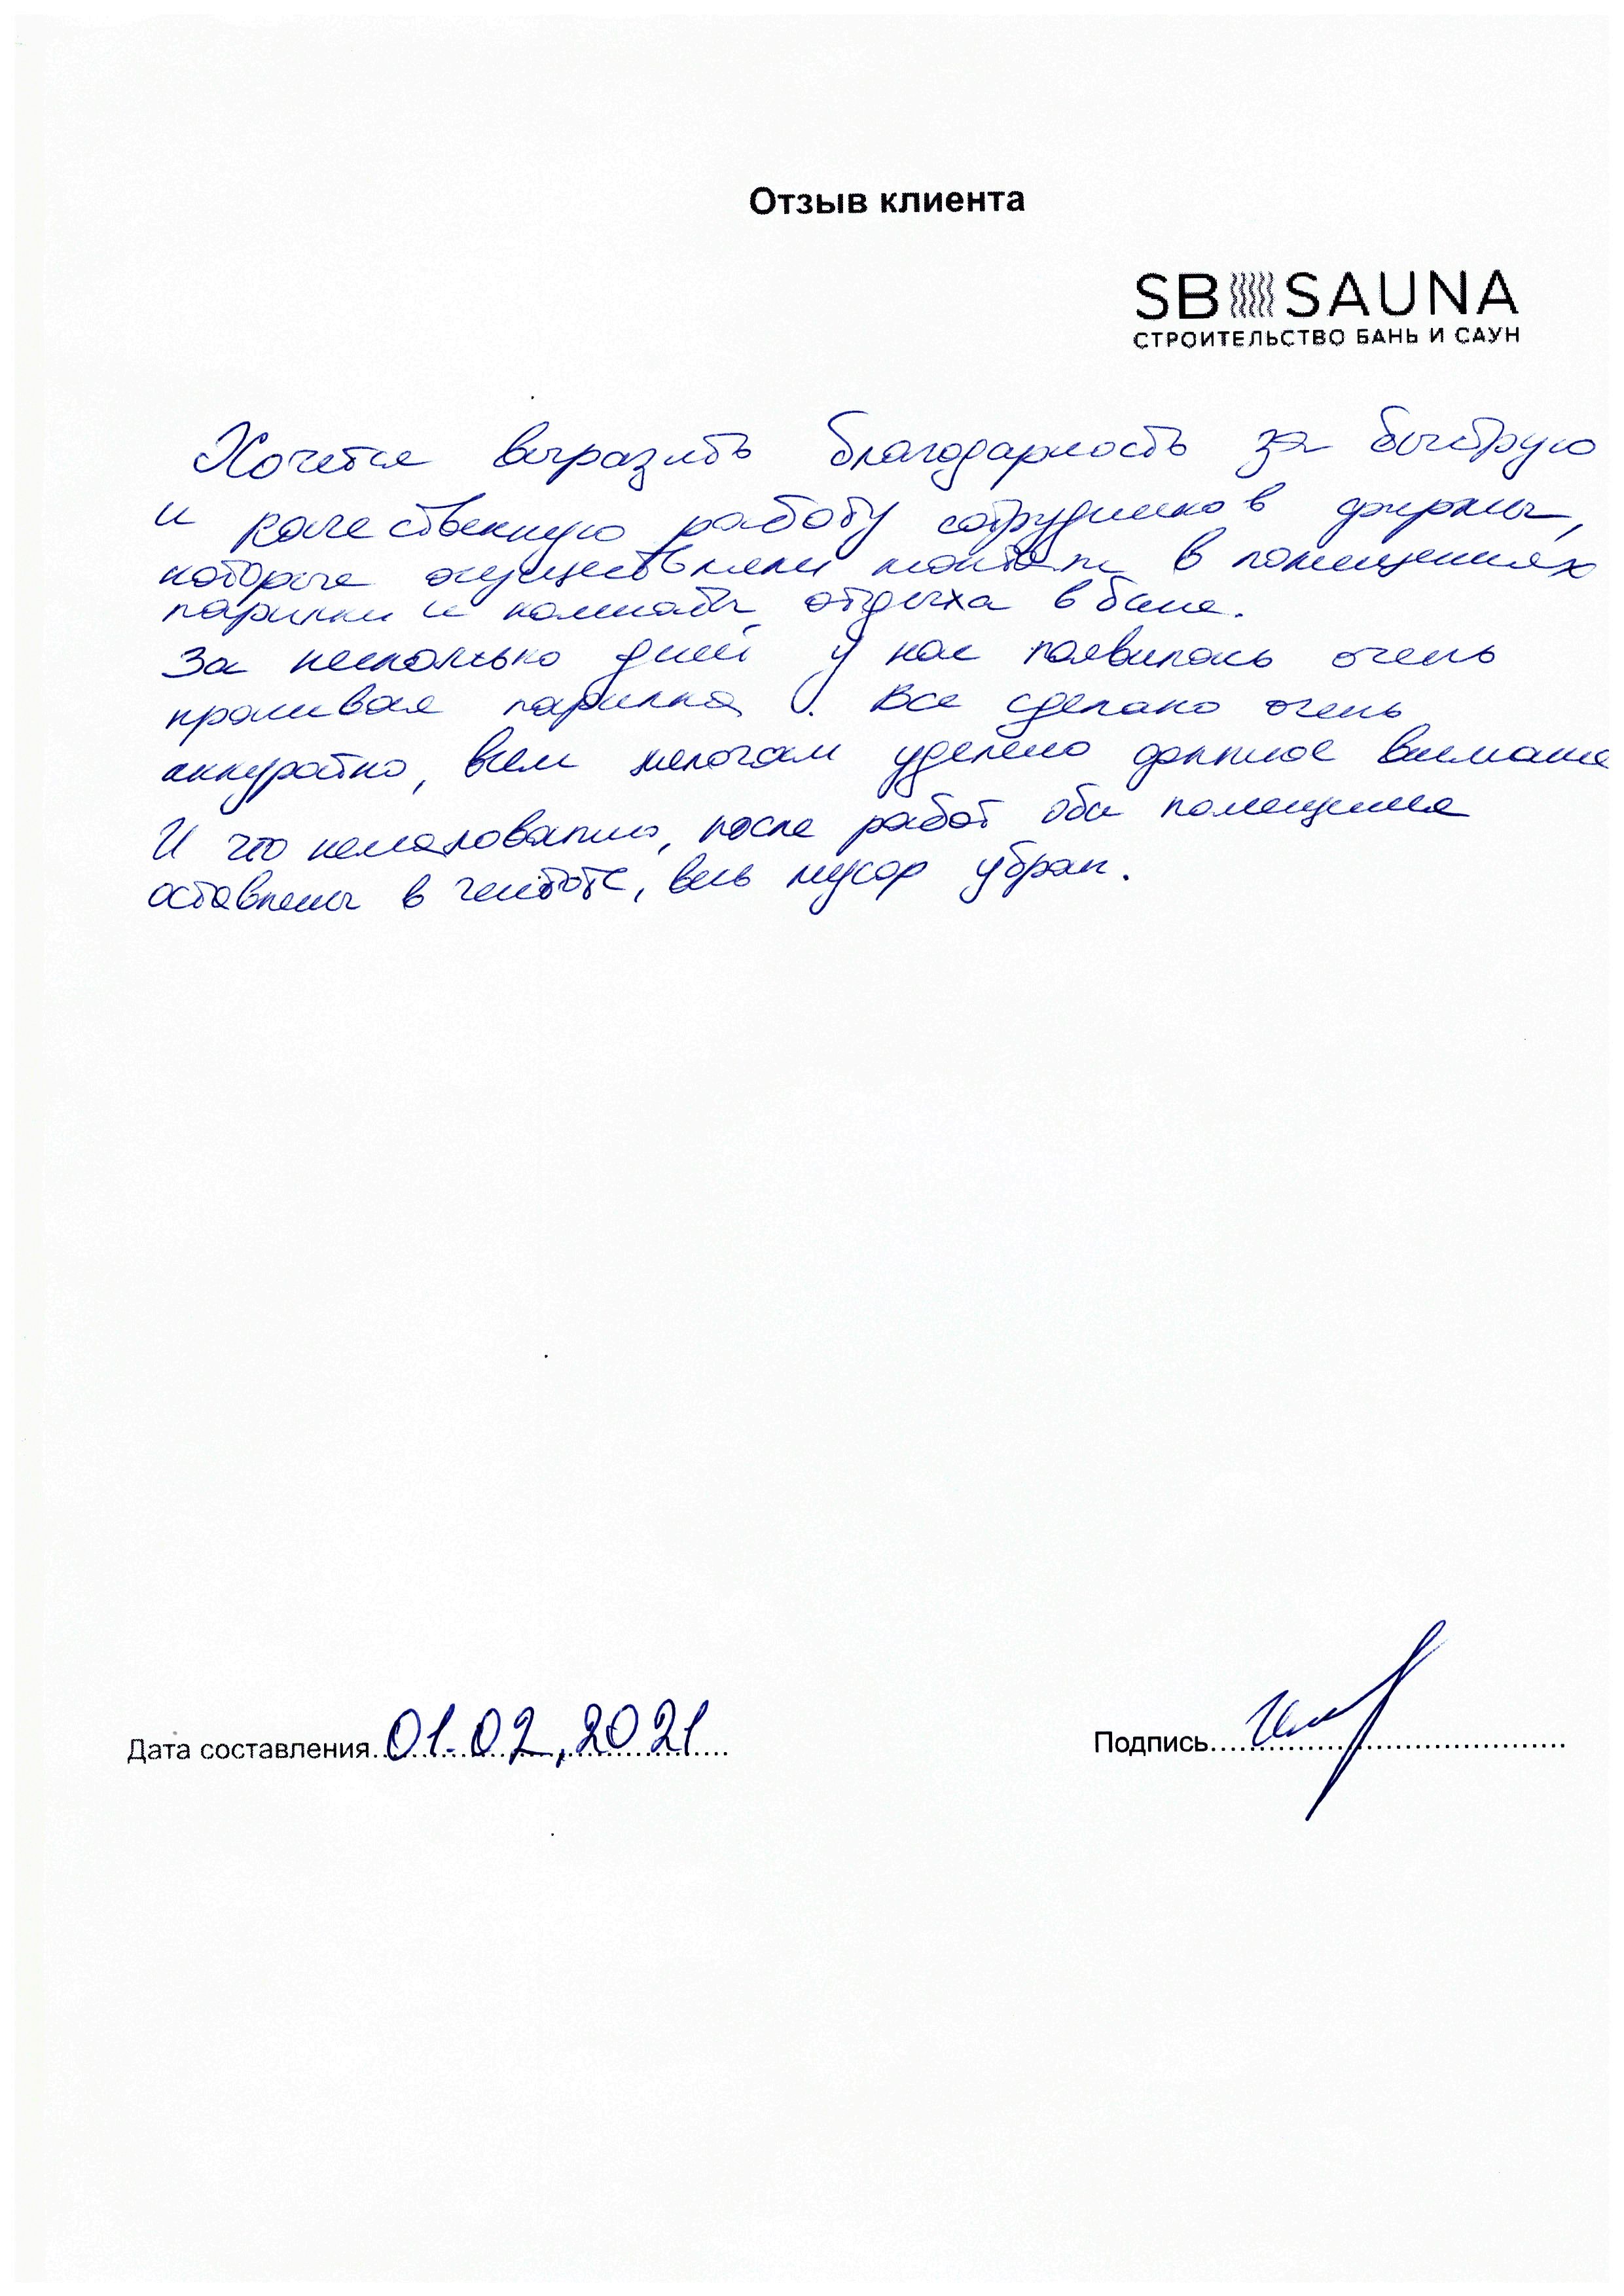 Отзыв клиента
SB SAUNA
СТРОИТЕЛЬСТВО БАНЬ И САУН
Хочется выразить благодарность за быструю
и качественную работу сотрудников фирмы,
которые осуществляли монтаж в помещениях
парилки и комнаты отдыха в бане.
За несколько дней у нас появилась очень
красивая парилка. Все сделано очень
аккуратно, всем мелочам уделено должное внимание
И что немаловажно, после работ оба помещения
оставлены в чистоте, весь мусор убран.
Дата составления 01.02.2021
Подпись